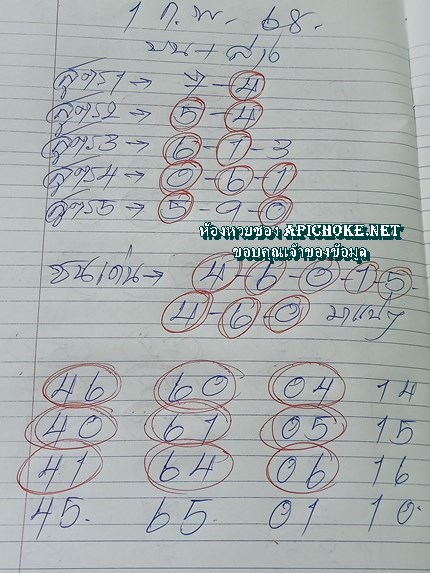 1 ก.พ. 68.
บน + ล่าง
สูตร1 → 7-4
สูตร2 → 5-4
สูตร3 → 6-1-3
สูตร4 → 0-6-1
สูตร5 → 5-9-0
ห้องหวยซอง APICHOKE.NET
ขอบคุณเจ้าของข้อมูล
ชนเด่น → 4-6-0-1-5.
4-6-0 มาแน่ๆ
46 60 04 14
40 61 05 15
41 64 06 16
45. 65 01 10.